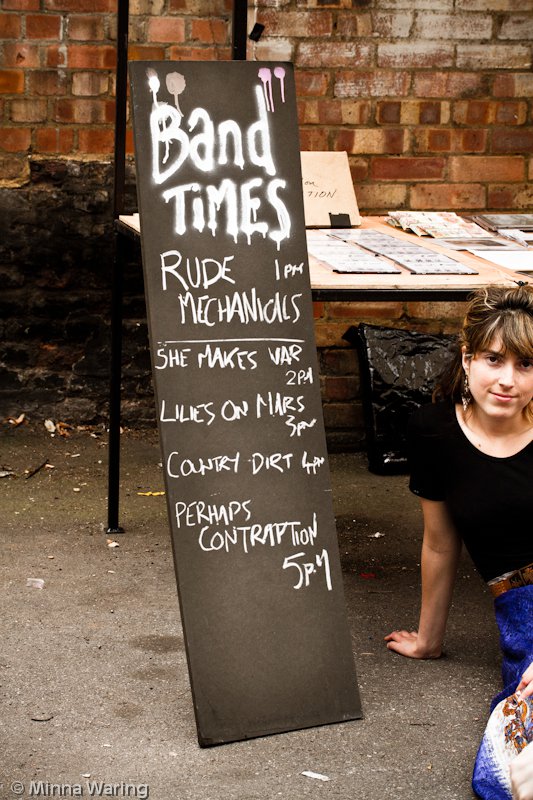 Band
TIMES
RUDE 1PM
MECHANICALS
SHE MAKES WAR
2PM
LILIES ON MARS
3PM
COUNTRY DIRT 4PM
PERHAPS
CONTRAPTION
5PM
© Minna Waring